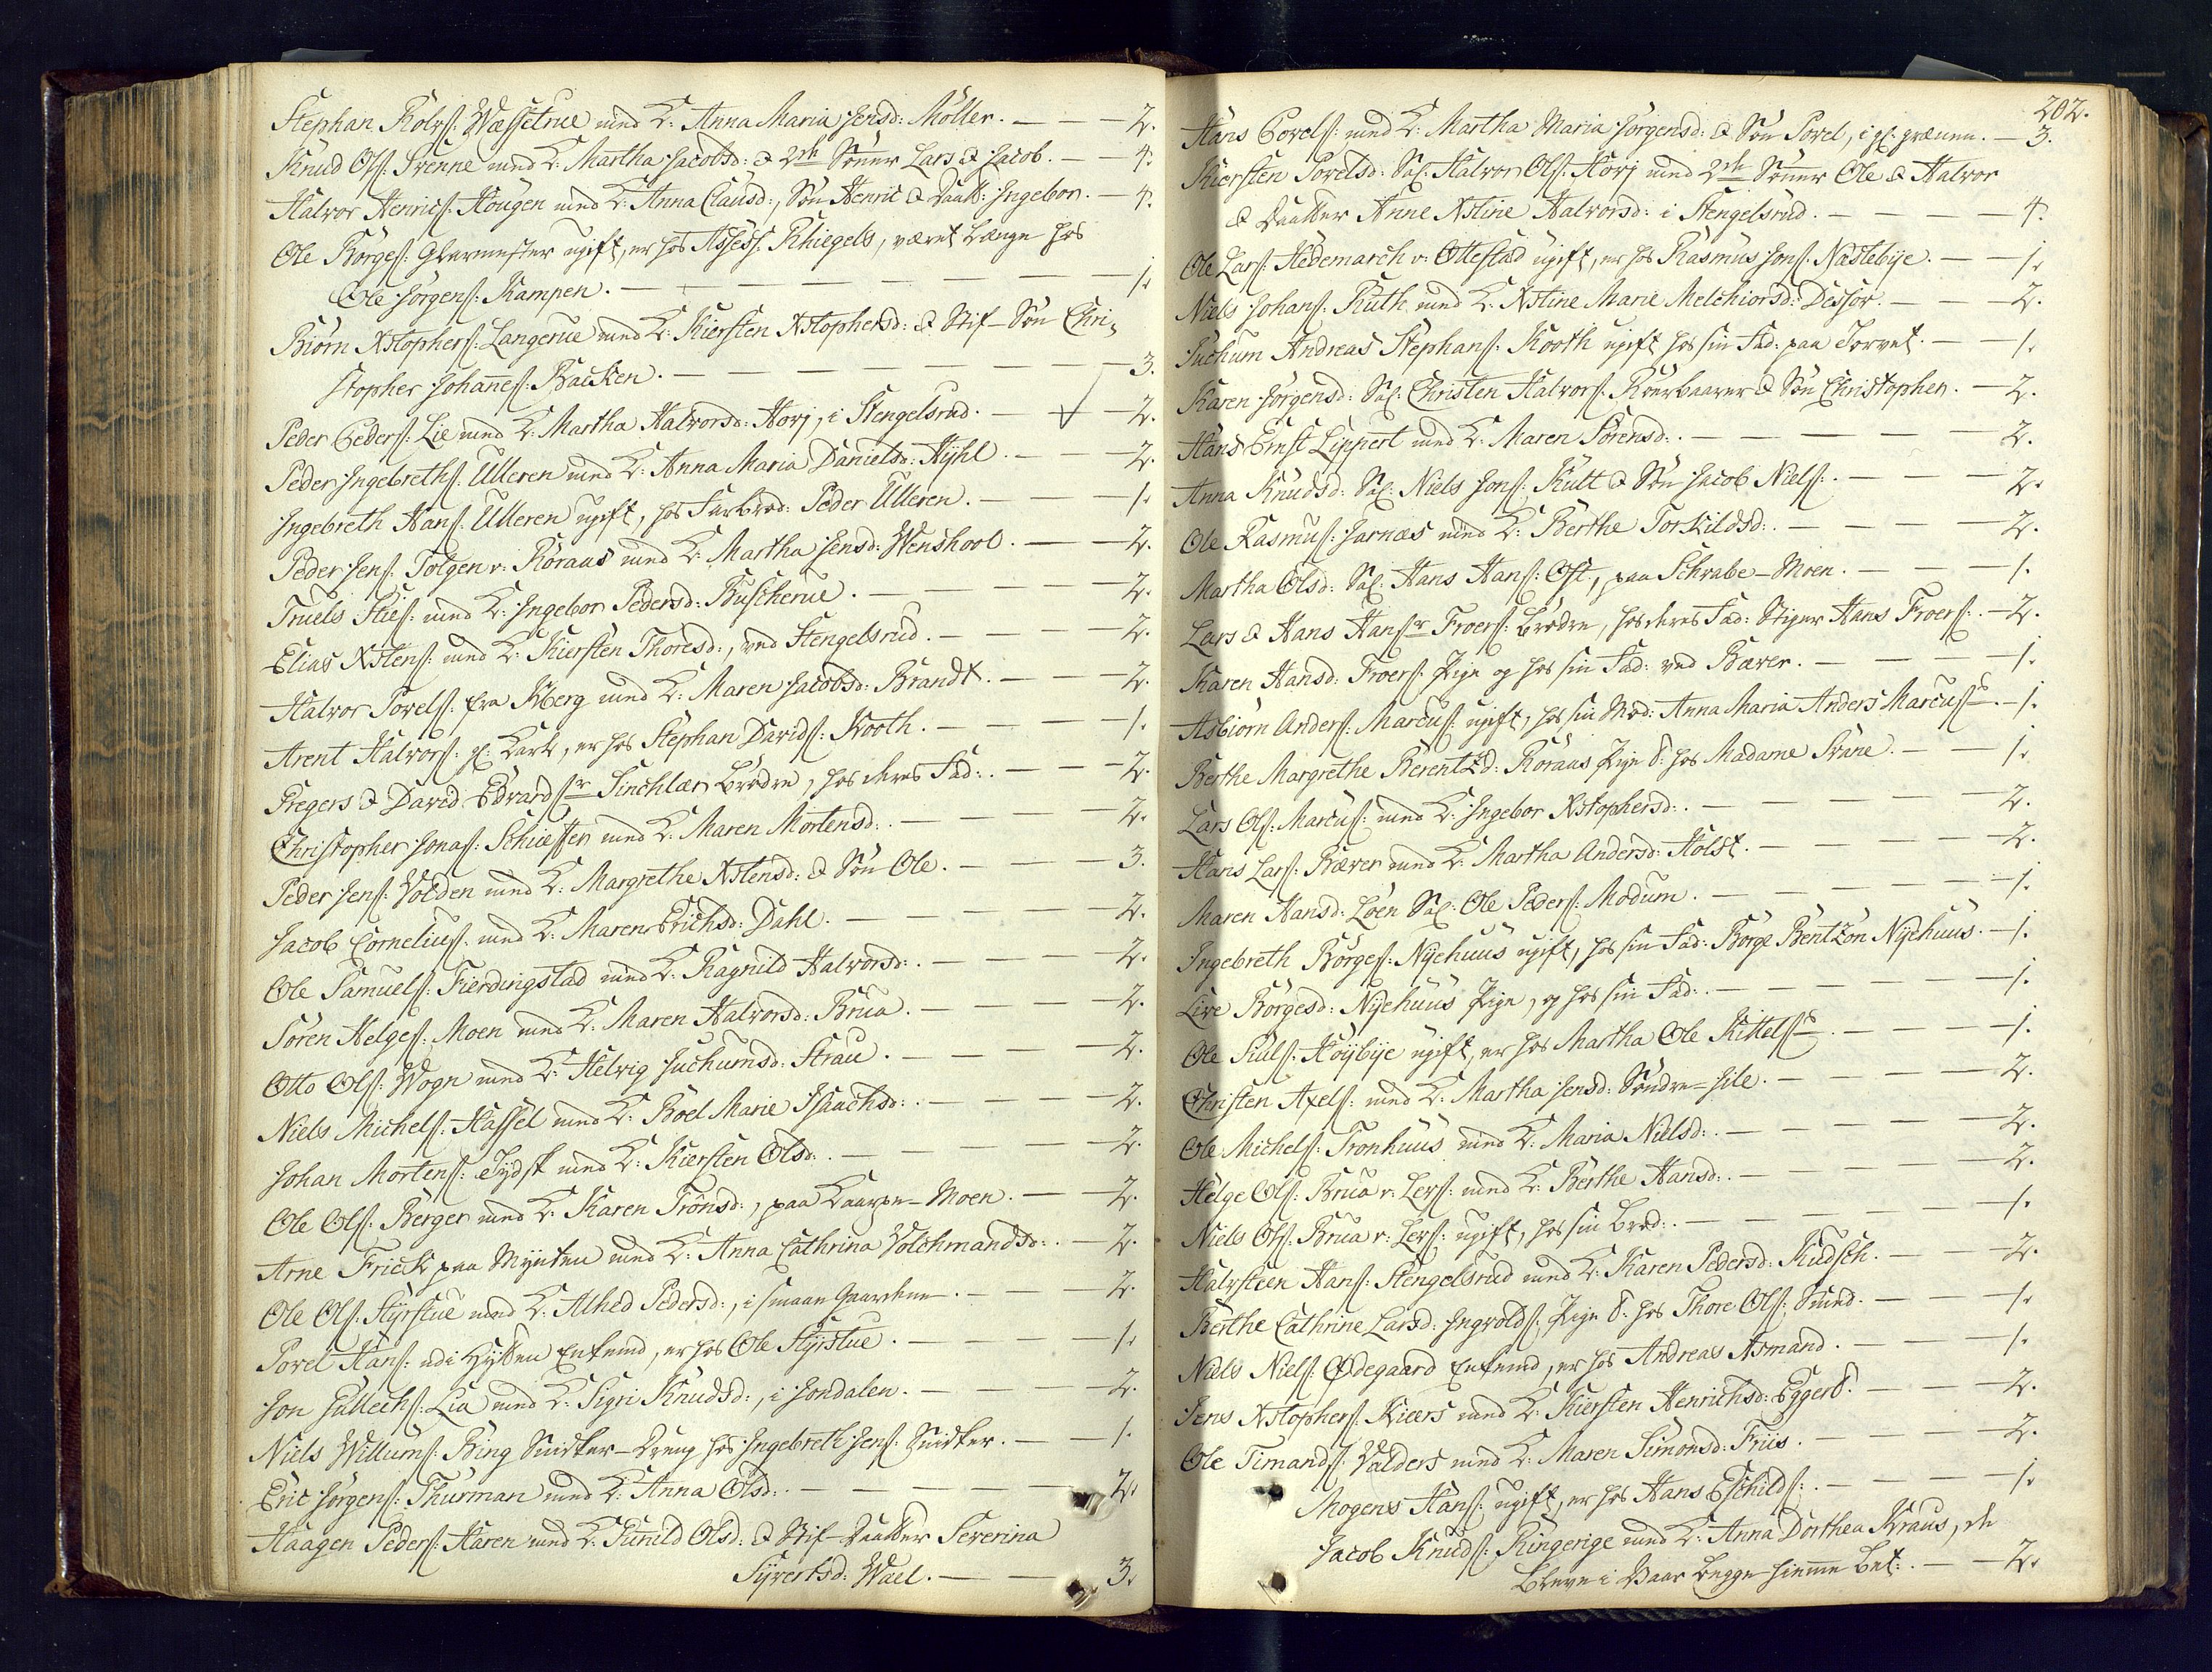 Stephan Rolvs: Wæssetrue med K: Anna Maria Jensd: Möller. — — 2.
Knud Ols: Svenne med K: Martha Jacobsd: & 2de Sönner Lars & Jacob. — — 4.
Halvor Henrics: Hougen med K: Anna Clausd:, Sön Henric & Daatt: Ingebor. — 4.
Ole Börges: Glarmester ugift, er hos Assess: Rhiegels, været længe hos
Ole Jörgens: Kampen. — — — — — 1.
Biörn Xstophers: Langerue med K: Kiersten Xstophersd: & Stif-Sön Chri-
stopher Johannes: Backen. — — — — — 3.
Peder Peders: Lie med K: Martha Halvorsd: Hovj, i Stengelsrud. — — 2.
Peder Ingebreths: Ulleren med K: Anna Maria Danielsd: Hÿhl — — 2.
Ingebreth Hans: Ulleren ugift, hos Farbrod: Peder Ulleren. — — 1.
Peder Jens: Tolgen v: Röraas med K: Martha Jensd: Wenshool. — — 2.
Truels Sties: med K: Ingebor Pedersd: Buscherue. — — — 2.
Elias Xstens: med K: Kiersten Thoresd:, ved Stengelsrud. — — — 2.
Halvor Povels: fra Kberg med K: Maren Jacobsd: Brandt. — — — 2.
Arent Halvors: gl: Karl, er hos Stephan Davids: Kooth. — — — 1.
Pregers & David Edvards:r Sinchlær Brödre, hos deres Fad:. — — — 2.
Christopher Jonas: Schieffer med K: Maren Mortensd:. — — — 2.
Peder Jens: Volden med K: Margrethe Xstensd: & Sön Ole. — — — 3.
Jacob Cornelius: med K: Maren Erichsd: Dahl. — — — 2.
Ole Samuels: Fierdingstad med K: Ragnild Halvorsd:. — — — 2.
Sören Helges: Moen med K: Maren Halvorsd: Brua. — — — 2.
Otto Ols: Wogn med K: Helvig Juchumsd: Strau. — — — 2.
Niels Michels: Hassel med K: Boel Marie Isaachsd:. — — — 2.
Johan Mortens: Tydsk med K: Kiersten Olsd:. — — — 2.
Ole Ols: Berger med K: Karen Tronsd:, paa Kaarpe-Moen. — — 2.
Arne Frick paa Mynten med K: Anna Cathrina Volchmandsd:. — 2.
Ole Ols: Styrstue med K: Alhed Pedersd:, i smaae Gaardene. — — 2.
Povel Hans: udi Hytten Enkemd, er hos Ole Styrstue. — — — 1.
Jon Gullechs: Lia med K: Sigri Knudsd:, i Jondalen. — — — 2.
Niels Willums: Bing Snidker-Dreng hos Ingebreth Jens: Snidker. — — 1.
Eric Jörgens: Thurman med K: Anna Olsd:. — — — — 2.
Haagen Peders: Haren med K: Gunild Olsd: & Stif-Daatter Severina
Syvertsd: Wael. — — — 3.
202.
Hans Povels: med K: Martha Maria Jörgensd: & Sön Povel, i gl: grænen. — 3.
Kiersten Povelsd: Sal: Halvor Ols: Hovj med 2de Sönner Ole & Halvor
& Daatter Anne Xstine Halvorsd: i Stengelsrud. — — — — 4.
Ole Lars: Hedemarch v: Ottestad ugift, er hos Rasmus Jons: Nastebÿe. — — 1.
Niels Johans: Ruth med K: Xstine Marie Melchiorsd: Dessor. — — 2.
Juchum Andreas Stephans: Kooth ugift hos sin Fad: paa Torvet. — — 1.
Karen Jörgensd: Sal: Christen Halvors: Rörbaarer & Sön Christopher. — 2.
Hans Ernst Lippert med K: Maren Sörensd:. — — — — 2.
Anna Knudsd: Sal: Niels Jons: Kult & Sön Jacob Niels:. — — — 2.
Ole Rasmus: Jarnæs med K: Berthe Torkildsd:. — — — — 2.
Martha Olsd: Sal: Hans Hans: Ost, paa Schrabe-Moen. — — — 1.
Lars & Hans Hans:r Froers: Brödre, hos deres Fad: Stiger Hans Froers:. — 2.
Karen Hansd: Froers: Pige og hos sin Fad: ved Bæver. — — — 1.
Asbiörn Anders: Marcus: ugift, hos sin Mod: Anna Maria Anders Marcus:s. — 1.
Berthe Margrethe Berentzd: Röraas Pige &: hos Madame Svane. — — 1.
Lars Ols: Marcus: med K: Ingebor Xstophersd:. — — — — 2.
Hans Lars: Bæver med K: Martha Andersd: Holst. — — — — 2.
Maren Hansd: Loen Sal: Ole Peders: Modum. — — — — 1.
Ingebreth Börges: Nÿehuus ugift, hos sin Fad: Börge Bentzön Nÿehuus. — 1.
Live Börgesd: Nÿehuus Pige, og hos sin Fad:. — — — — 1.
Ole Giuls: Höÿbÿe ugift, er hos Martha Ole Kittels:s. — — — 1.
Christen Axels: med K: Martha Jensd: Söndre-Jile. — — — 2.
Ole Michels: Tronhuus med K: Maria Nielsd:. — — — — 2.
Helge Ols: Brua v: Lers: med K: Berthe Hansd:. — — — — 2.
Niels Ols: Brua v: Lers: ugift, hos sin Brod:. — — — — 1.
Halvsteen Hans: Stengelsrud med K: Karen Pedersd: Rudsch. — — 2.
Berthe Cathrine Larsd: Ingvolds: Pige &: hos Thore Ols: Smed. — — 1.
Niels Niels: Ødegaard Enkemd, er hos Andreas Asmand. — — 1.
Jens Xstophers: Kieers med K: Kiersten Henrichsd: Eggers. — — 2.
Ole Timands: Valders med K: Maren Simonsd: Friis. — — — 2.
Mogens Hans: ugift, er hos Hans Eschilds:. — — — 1.
Jacob Knuds: Ringerige med K: Anna Dorthea Kraus, de
bleve i Vaar begge hiemme bet:. — — 2.